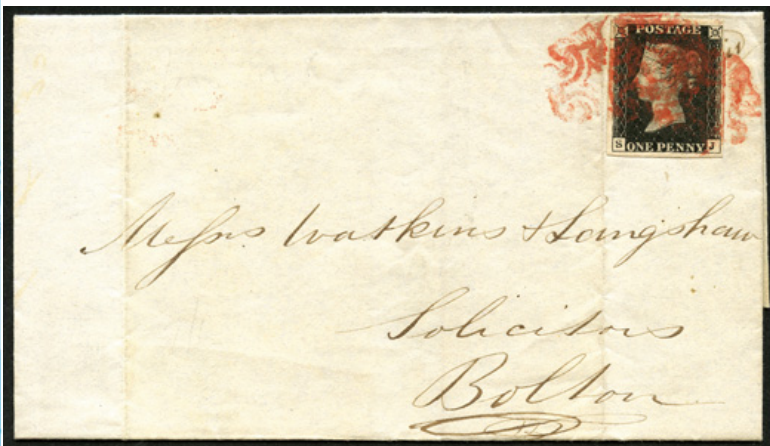 POSTAGE
S ONE PENNY J
Messrs Watkins & Langshaw
Solicitors
Bolton